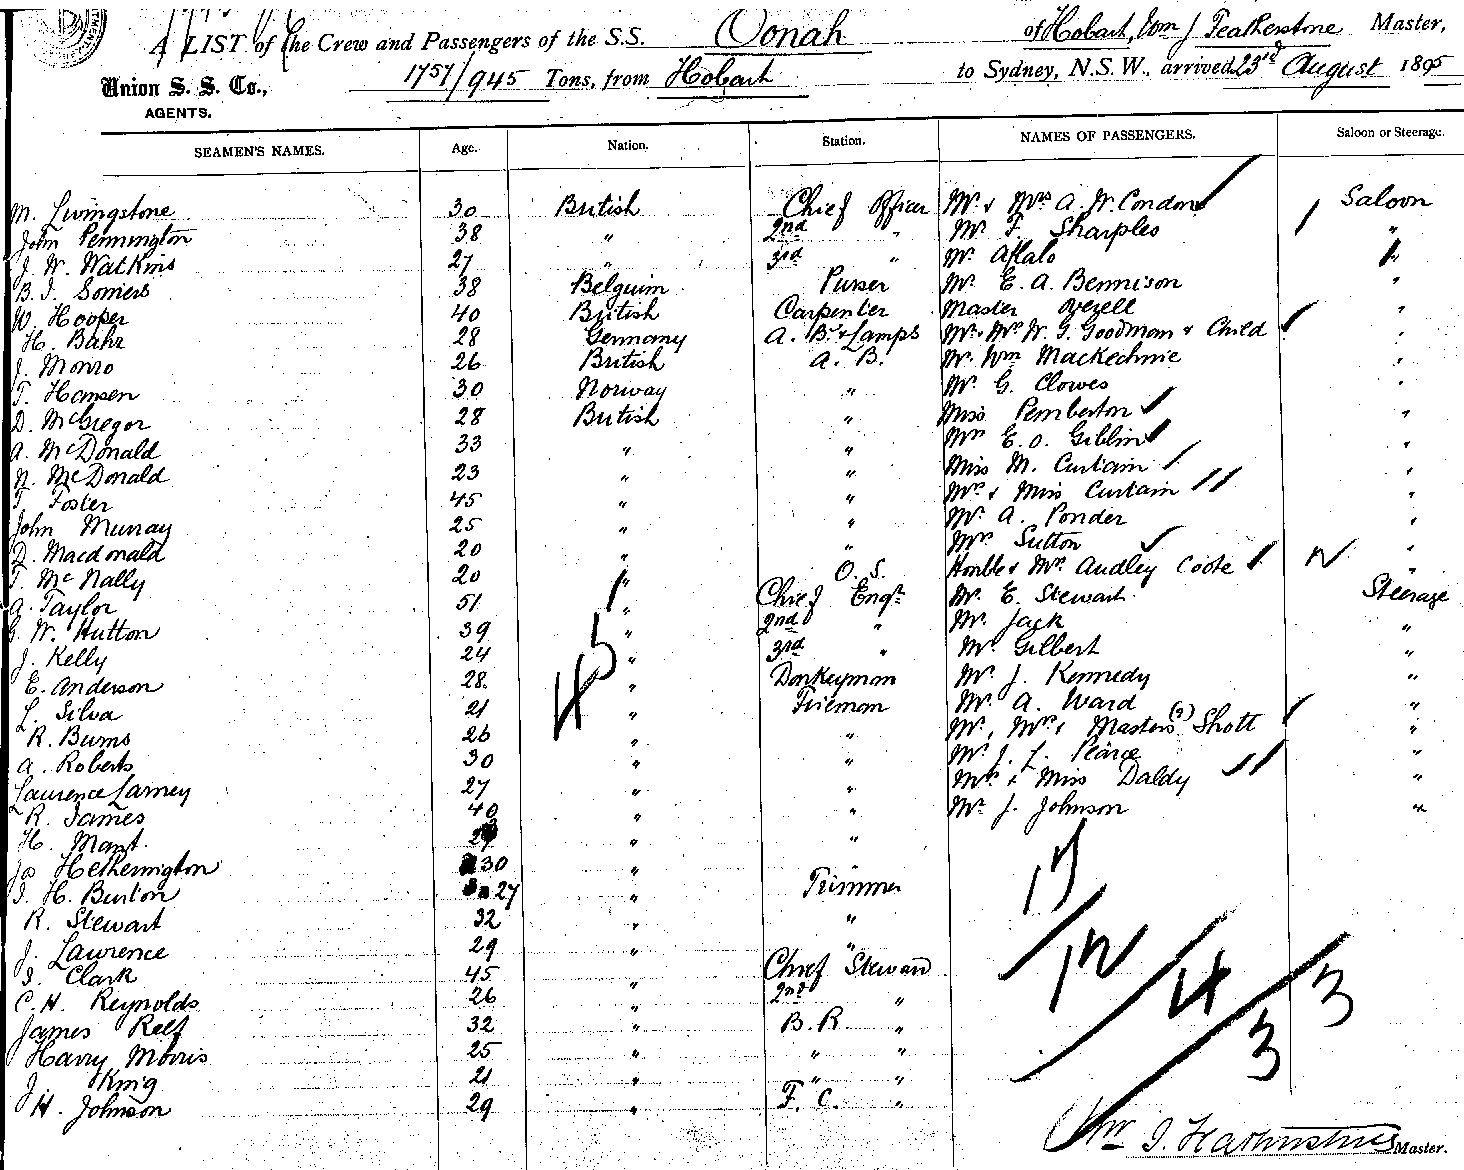 A LIST of the Crew and Passengers of the S.S. Oonah of Hobart, Wm J Featherstone Master,
Union S. S. Co., 1757/945 Tons, from Hobart to Sydney, N.S.W., arrived 23rd August 1895
AGENTS.
SEAMEN'S NAMES. Age. Nation. Station. NAMES OF PASSENGERS. Saloon or Steerage.
M. Livingstone 30 British Chief Officer Mr & Mrs A. W. Condon 1 Saloon
John Pennington 38 " 2nd " Mr F. Sharples "
J. W. Watkins 27 " 3rd " Mr Aflalo "
B. J. Somers 38 Belguim Purser Mr E. A. Bennison "
W. Hooper 40 British Carpenter Master "
H. Bahr 28 Germany A. B. & Lamps Mr & Mrs W. G. Goodman & Child "
J. Monro 26 British A. B. Mr Wm Mackechnie "
T. Hansen 30 Norway " Mr G. Clowes "
D. McGregor 28 British " Miss Pemberton "
A. McDonald 33 " " Mrs E. O. Giblin "
N. McDonald 23 " " Miss M. Curtain "
T. Foster 45 " " Mrs & Miss Curtain "
John Murray 25 " " Mr A. Ponder "
D. Macdonald 20 " " Mrs Sutton "
T. McNally 20 " O. S. Honble & Mrs Audley Coote "
A. Taylor 51 " Chief Engr Mr E. Stewart Steerage
G. W. Hutton 39 " 2nd " Mr Jack "
J. Kelly 24 " 3rd " Mr Gilbert "
E. Anderson 28. " Donkeyman Mr J. Kennedy "
L. Silva 21 " Fireman Mr A. Ward "
R. Burns 26 " " Mr, Mrs & Masters (2) Shott "
A. Roberts 30 " " Mr J. L. Pearce "
Laurence Larney 27 " " Mrs & Miss Daldy "
R. James 40 " " Mr J. Johnson "
H. Mant. " "
Jas Hetherington 30 " "
J. H. Burton 27 " Trimmer
R. Stewart 32 " "
J. Lawrence 29 " "
J. Clark 45 " Chief Steward
C. H. Reynolds 26 " 2nd "
James Relf 32 " B. R. "
Harry Morris 25 " " "
J. King 21 " " "
J H. Johnson 29 " F. C. "
45
17/12/4/3
3
Wm J. Featherstone Master.